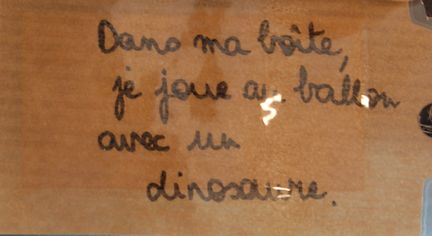 Dans ma boîte,
je joue au ballon
avec un
dinosaure.